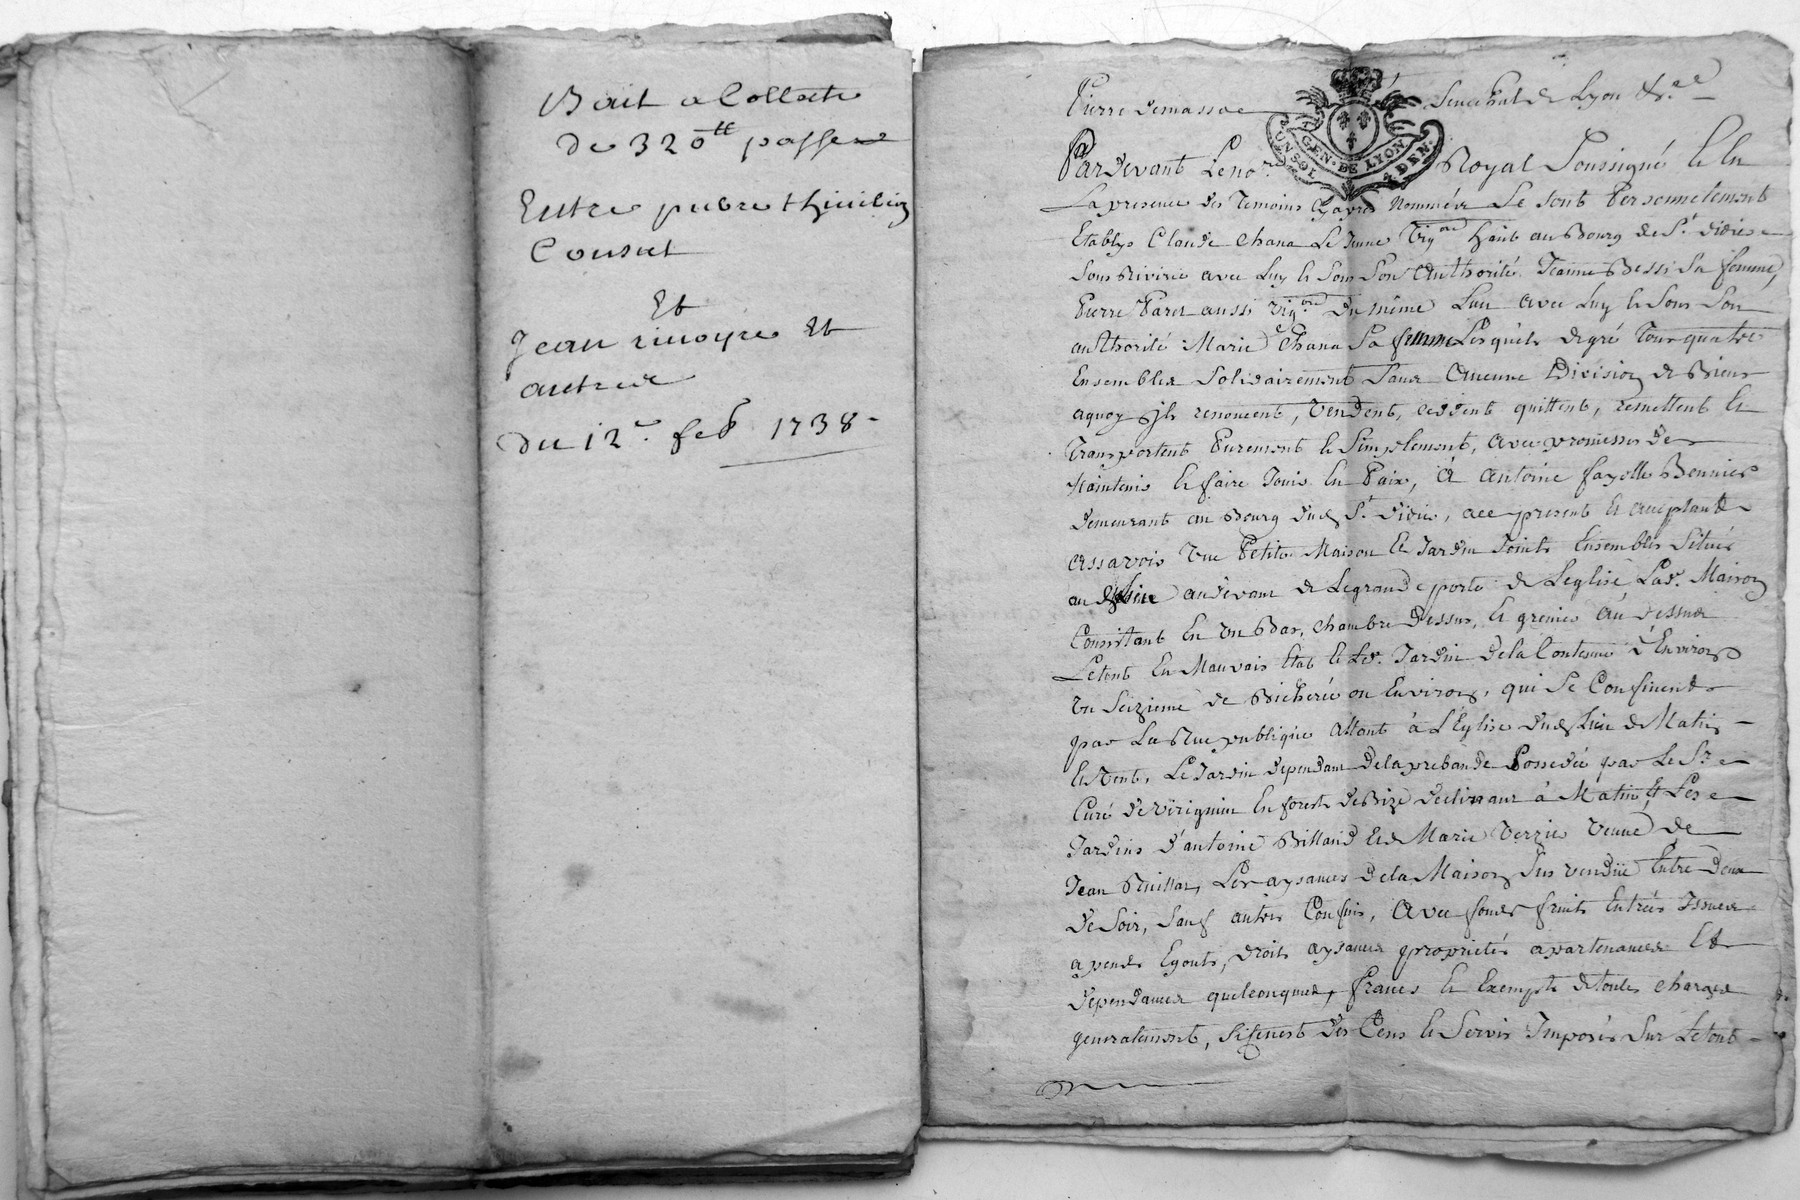 Bail a Collecte
de 320tt passee
Entre pierre thivilion
Consul
Et
Jean rivoyre Et
autres
du 12e. feb 1738 -
Pierre Demasso Senechal de Lyon &.ee
GEN. DE LYON
UN SOL 4 DEN.
Pardevant Le nore. Royal Soussigné Et En
La presence des Temoins Cyapres Nommés Se sont Personnelement
Etablys Claude Chana Le Jeune Vigon habt au Bourg de St. Didier
Sous Rivirie avec Luy Et Sous Son Authorité Jeanne Bessi Sa femme,
Pierre Paret aussi Vigon du même Lieu avec Luy Et Sous Son
authorité Marie Chana Sa femme Lesquels de gré Tous quatre
Ensembles Solidairement Sans Aucune Division de Biens
aquoy Ils renoncent, Vendent, ceddent quittent, remettent Et
Transportent Purement Et Simplement, avec promesses de
Maintenir Et faire Jouir En Paix, à Antoine fayolle Bennier
Demeurant au Bourg dud St. Didier, ace present Et acceptant
Assavoir Une Petite Maison Et Jardin Joints Ensembles Situés
aud Lieu audevant de Legrande porte de Leglise Lad. Maison
Consistant En Un Bas, chambre Dessus, Et grenier Au dessus
Letout En Mauvais Etat Et Led. Jardin Dela Contenue d'Environ
Un Seizieme de Bicherée ou Environ, qui Se Confinent
par La Rue publique Allant à L'Eglise dud Lieu de Matin
Et Vent, Le Jardin dependant Dela prebande Possedée par Le Sr.
Curé de Virigneu En forest de Bize declinant à Matin, Et Les
Jardins d'antoine Billaud Et de Marie Verzie Veuve de
Jean Rullat, Les aysances Dela Maison Sus vendüe Entre Deux
De Soir, Sauf autres Confins, Avec fonds fruits Entrées Issues
apends Egouts, droits aysances proprietés apartenances Et
dependances quelconques, francs Et Exempts de toutes charges
generalement, Sifenest des Cens Et Servis Imposés Sur Letout